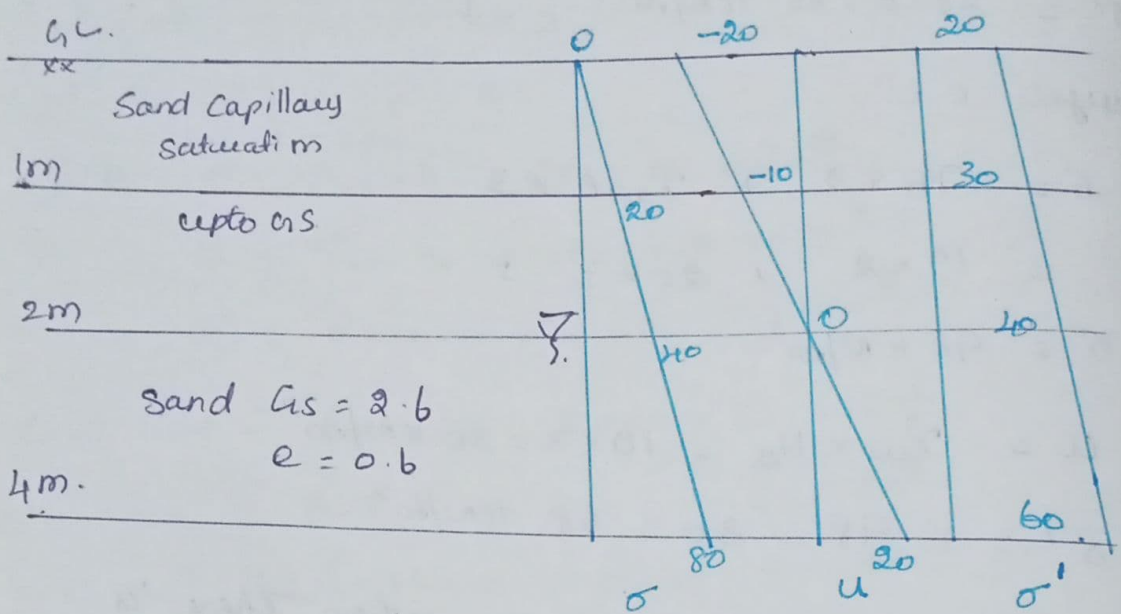 GL.
0 -20 20
xx
Sand Capillary
Satuati m
1m -10 30
upto GS 20
2m 0 40
40
Sand Gs = 2.6
e = 0.6
4m. 60
80 20
σ u σ'